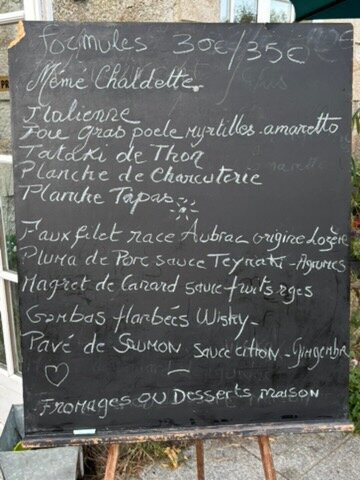 formules 30€/35€
Mémé Chaldette.
Italienne
Foie gras poele myrtilles. amaretto
Tataki de Thon
Planche de Charcuterie
Planche Tapas
Faux filet race Aubrac origine Lozère
Pluma de Porc sauce Teyriaki - Agrumes
Magret de Canard sauce fruits rges
Gambas flambées Wisky -
Pavé de SAUMON sauce citron - Gingembre
FROMAGES OU DESSERTS MAISON